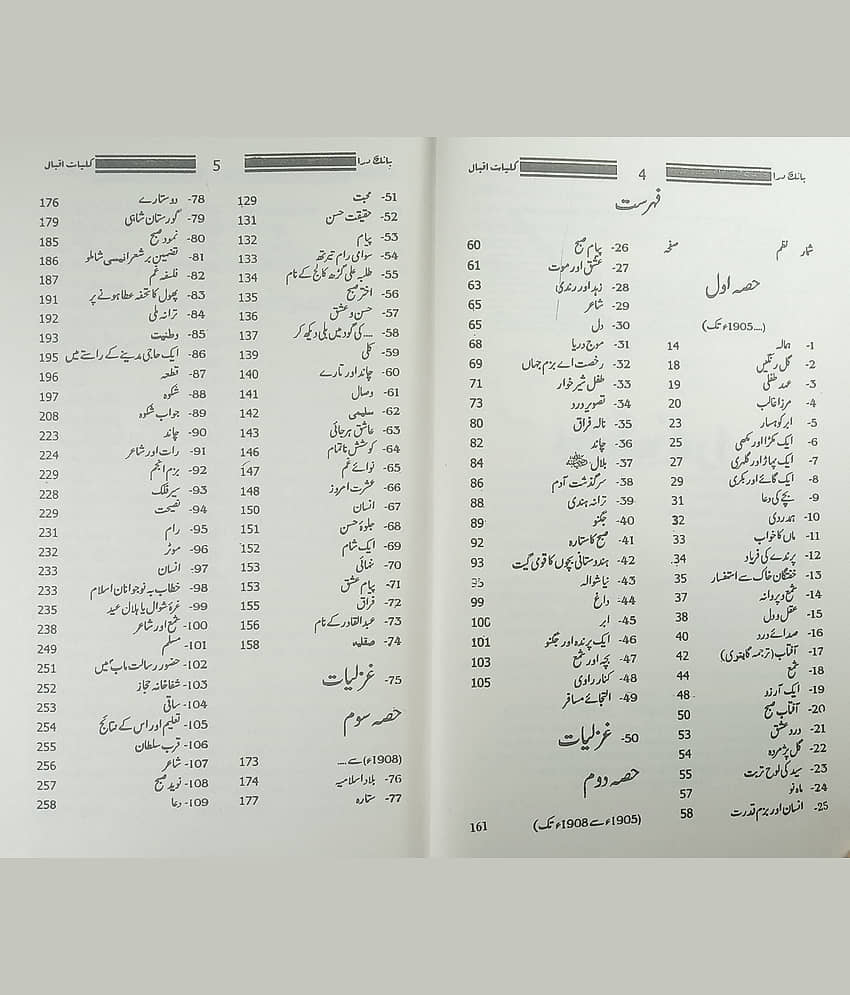 بانگِ درا 4 کلیات اقبال
فہرست
شمار نظم صفحہ
حصہ اول
(....1905ء تک)
1- ہمالہ 14
2- گل رنگیں 18
3- عہد طفلی 19
4- مرزا غالب 20
5- ابر کوہسار 23
6- ایک مکڑا اور مکھی 25
7- ایک پہاڑ اور گلہری 27
8- ایک گائے اور بکری 29
9- بچے کی دعا 31
10- ہمدردی 32
11- ماں کا خواب 33
12- پرندے کی فریاد 34
13- خفتگان خاک سے استفسار 35
14- شمع و پروانہ 37
15- عقل و دل 38
16- صدائے درد 40
17- آفتاب (ترجمہ گایتری) 42
18- شمع 44
19- ایک آرزو 48
20- آفتاب صبح 50
21- درد عشق 53
22- گل پژمردہ 54
23- سید کی لوح تربت 55
24- ماہ نو 57
25- انسان اور بزم قدرت 58
26- پیام صبح 60
27- عشق اور موت 61
28- زہد اور رندی 63
29- شاعر 65
30- دل 65
31- موج دریا 68
32- رخصت اے بزم جہاں 69
33- طفل شیر خوار 71
34- تصویر درد 73
35- نالہ فراق 80
36- چاند 82
37- بلال 84
38- سرگذشت آدم 86
39- ترانہ ہندی 88
40- جگنو 89
41- صبح کا ستارہ 92
42- ہندوستانی بچوں کا قومی گیت 93
43- نیا شوالہ
44- داغ 99
45- ابر 100
46- ایک پرندہ اور جگنو 101
47- بچہ اور شمع 103
48- کنار راوی 105
49- التجائے مسافر
50- غزلیات
حصہ دوم
(1905ء سے 1908ء تک) 161
بانگِ درا 5 کلیات اقبال
51- محبت 129
52- حقیقت حسن 131
53- پیام 132
54- سوامی رام تیرتھ 133
55- طلبہ علی گڑھ کالج کے نام 134
56- اختر صبح 135
57- حسن و عشق 136
58- ....کی گود میں بلی دیکھ کر 137
59- کلی 139
60- چاند اور تارے 140
61- وصال 141
62- سلیمی 142
63- عاشق ہرجائی 143
64- کوشش ناتمام 146
65- نوائے غم 147
66- عشرت امروز 148
67- انسان 150
68- جلوۂ حسن 151
69- ایک شام 152
70- تنہائی 153
71- پیام عشق 153
72- فراق 155
73- عبدالقادر کے نام 156
74- صقلیہ 158
75- غزلیات
حصہ سوم
(1908ء) سے.... 173
76- بلاد اسلامیہ 174
77- ستارہ 177
78- دو ستارے 176
79- گورستان شاہی 179
80- نمود صبح 185
81- تضمین بر شعر انیسی شاملو 186
82- فلسفہ غم 187
83- پھول کا تحفہ عطا ہونے پر 191
84- ترانہ ملی 192
85- وطنیت 193
86- ایک حاجی مدینے کے راستے میں 195
87- قطعہ 196
88- شکوہ 197
89- جواب شکوہ 208
90- چاند 223
91- رات اور شاعر 224
92- بزم انجم 229
93- سیر فلک 228
94- نصیحت 229
95- رام 231
96- موٹر 232
97- انسان 233
98- خطاب بہ نوجوانان اسلام 233
99- غرۂ شوال یا ہلال عید 235
100- شمع اور شاعر 238
101- مسلم 249
102- حضور رسالت مآب میں 251
103- شفاخانہ حجاز 252
104- ساقی 253
105- تعلیم اور اس کے نتائج 254
106- قرب سلطان 255
107- شاعر 256
108- نوید صبح 257
109- دعا 258